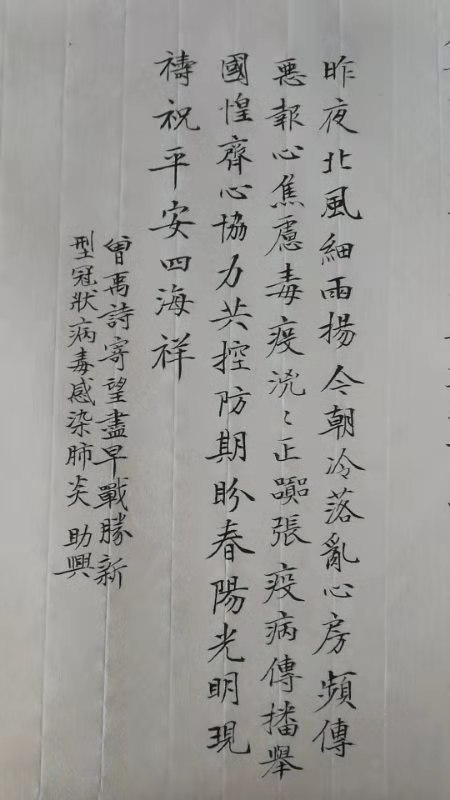 昨夜北風細雨揚今朝冷落亂心房頻傳
惡報心焦慮毒疫洶〻正張疫病傳播舉
國惶齊心協力共控防期盼春陽光明現
禱祝平安四海祥
曾禹詩寄望盡早戰勝新
型冠狀病毒感染肺炎 助興